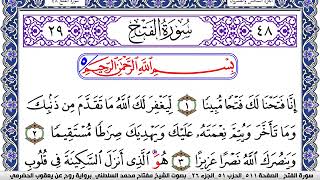 ٤٨ سُورَةُ الْفَتْحِ ٢٩
بِسْمِ ٱللَّهِ ٱلرَّحْمَٰنِ ٱلرَّحِيمِ
إِنَّا فَتَحْنَا لَكَ فَتْحًا مُّبِينًا ١ لِّيَغْفِرَ لَكَ ٱللَّهُ مَا تَقَدَّمَ مِن ذَنۢبِكَ
وَمَا تَأَخَّرَ وَيُتِمَّ نِعْمَتَهُۥ عَلَيْكَ وَيَهْدِيَكَ صِرَٰطًا مُّسْتَقِيمًا ٢
وَيَنصُرَكَ ٱللَّهُ نَصْرًا عَزِيزًا ٣ هُوَ ٱلَّذِىٓ أَنزَلَ ٱلسَّكِينَةَ فِى قُلُوبِ
سورة الفتح الصفحة ٥١١ الحزب ٥١ الجزء ٢٦ بصوت الشيخ مفتاح محمد السلطني برواية روح عن يعقوب الحضرمي